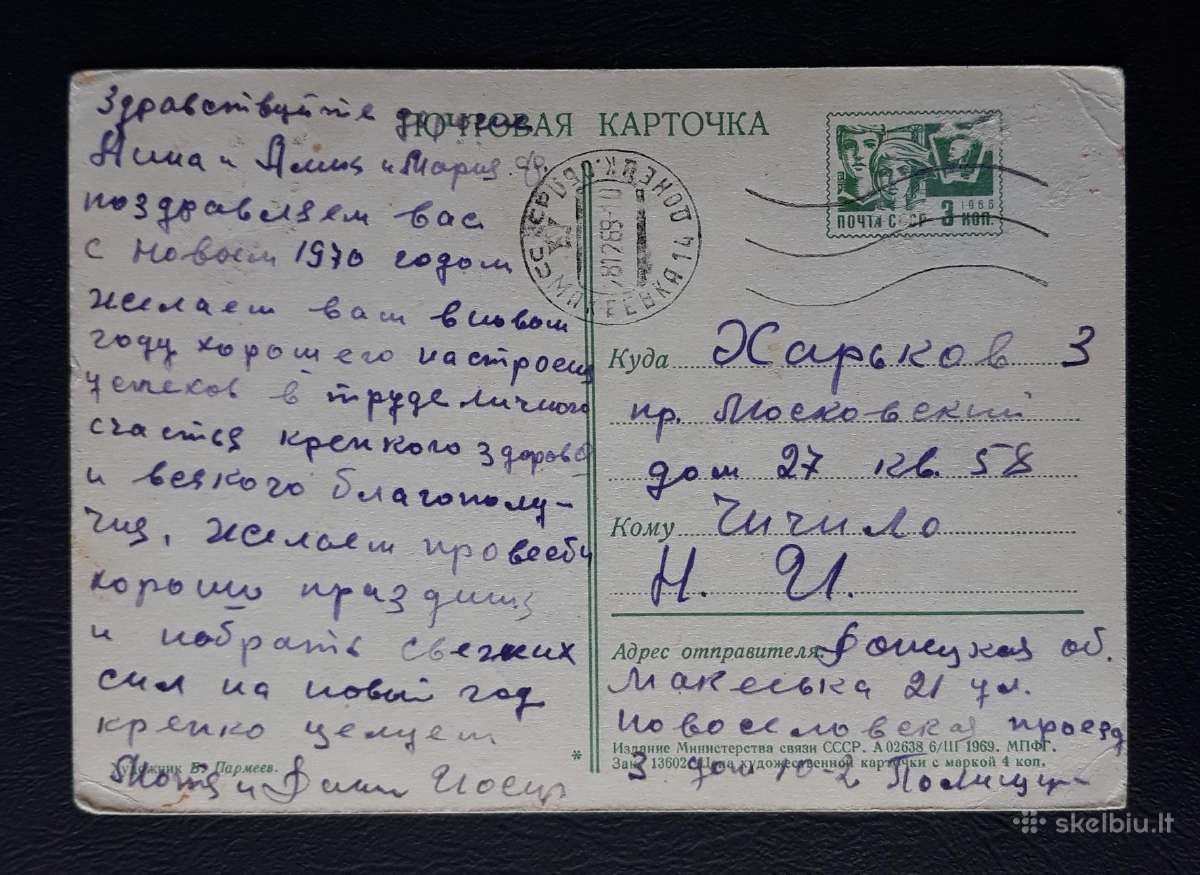 Здравствуйте дорогие
Нина и Алик и Мария
поздравляем вас
с Новым 1970 годом
желаем вам в новом
году хорошего настроен
успехов в труде личного
счастья крепкого здоров
и всякого благополу-
чия, желаем провести
хорошо праздник
и набрать свежих
сил на новый год
крепко целуем
Мотя и
Художник В. Пармеев.
ПОЧТОВАЯ КАРТОЧКА
МАКЕЕВКА 14 ДОНЕЦК. ОБЛ
281269
1966
ПОЧТА СССР 3 КОП
Куда Харьков 3
пр. Московский
дом 27 кв. 58
Кому Чичило
Н. И.
Адрес отправителя: Донецкая об.
Макеевка 21 ул.
Новоселовская проезд
Издание Министерства связи СССР. А 02638 6/III 1969. МПФГ.
Зак. 13602. Цена художественной карточки с маркой 4 коп.
3 дом 10-2 Полищу-
*
skelbiu.lt